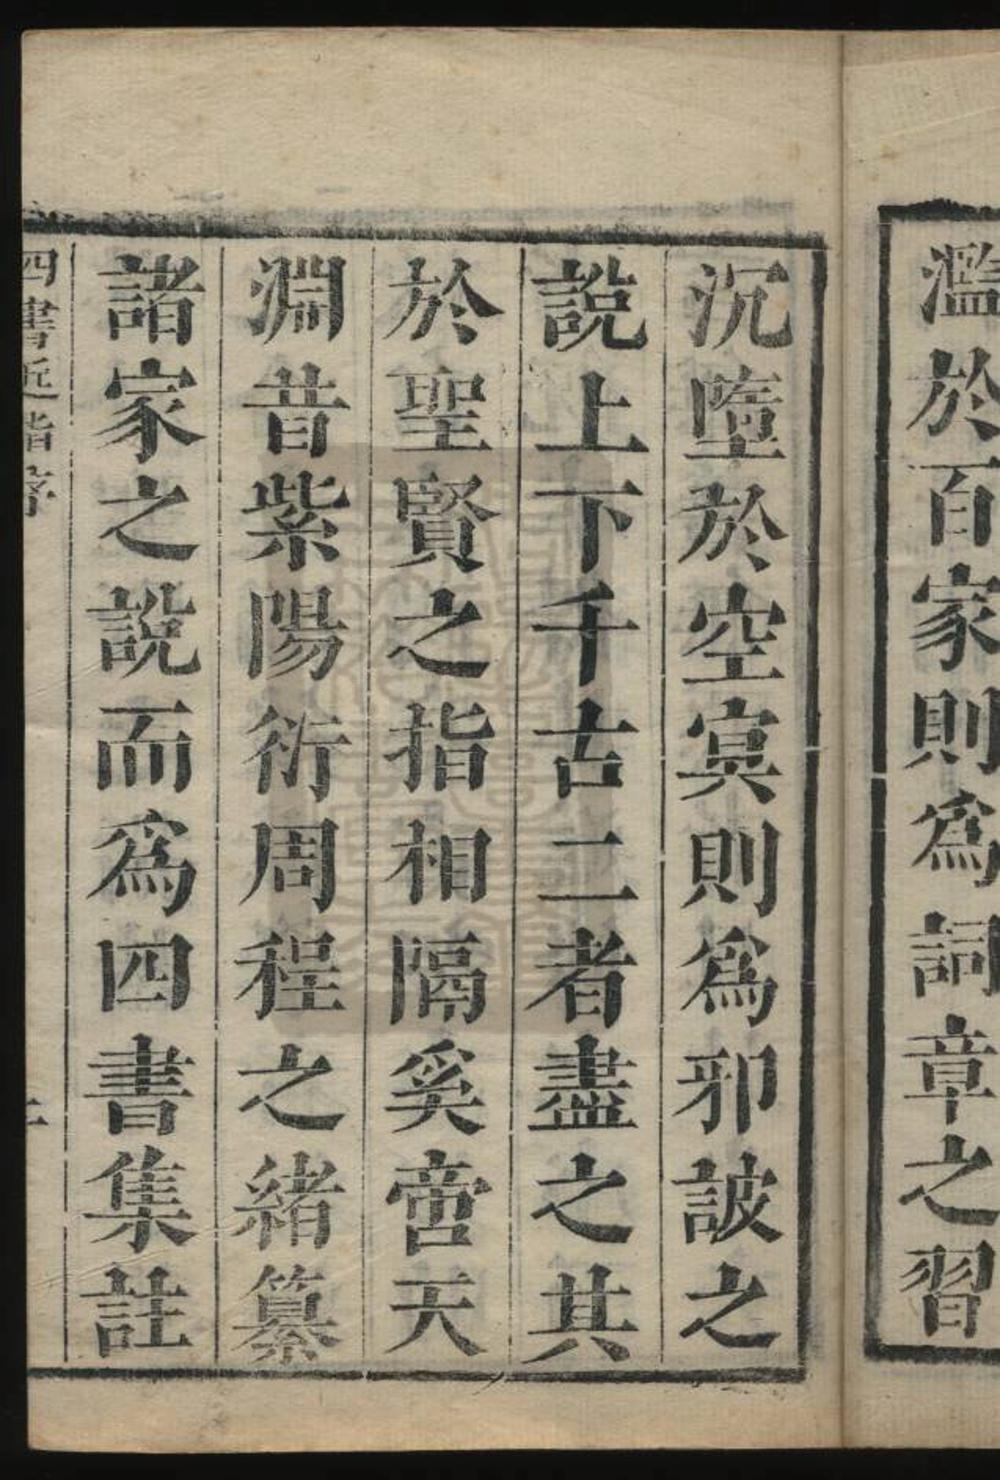 濫於百家則爲詞章之習
沉墮於空寞則爲邪詖之
說上下千古二者盡之其
於聖賢之指相隔奚啻天
淵昔紫陽衍周程之緒纂
諸家之說而爲四書集註
四書近指序